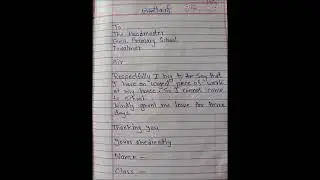 To
The Headmaster
Primary School
Sir
Respectfully I beg to say that
I have an urgent piece of work
at my house. So I cannot come
to school.
Kindly grant me leave for three
days.
Thanking you
Yours obediently
Name -
Class -